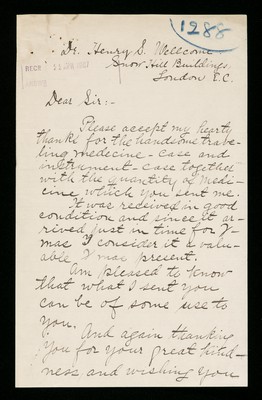 1288
Dr. Henry S. Wellcome
Snow Hill Buildings
London E.C.
RECD
Dear Sir:-
Please accept my hearty
thanks for the handsome trave-
ling medecine-case and
instrument-case together
with the quantity of medi-
cine which you sent me.
It was received in good
condition and since it ar-
rived just in time for X-
mas I consider it a valu-
able X'mas present.
Am pleased to know
that what I sent you
can be of some use to
you.
And again thanking
you for your great kind-
ness and wishing you